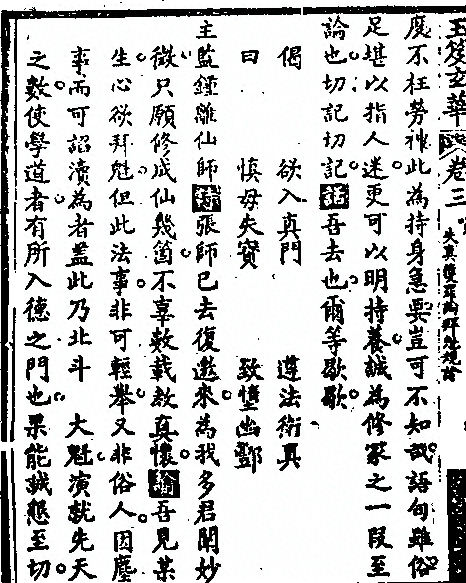 玉笈玄華 卷三
度不枉勞神此為持身急要豈可不知哉語句雖俗
足堪以指人迷更可以明持養誠為修家之一段至
論也切記切記吾去也爾等歇歇
偈 欲入真門 遵法衛具
曰 慎毋失寶 致墮幽酆
主監鍾離仙師 張師已去復邀來為我多君闡妙
微只願修成仙幾箇不辜數載教真懷 吾見某
生心欲拜魁但此法事非可輕舉又非俗人因塵
事而可諂瀆為者蓋此乃北斗 大魁演就先天
之數使學道者有所入德之門也果能誠懇至切